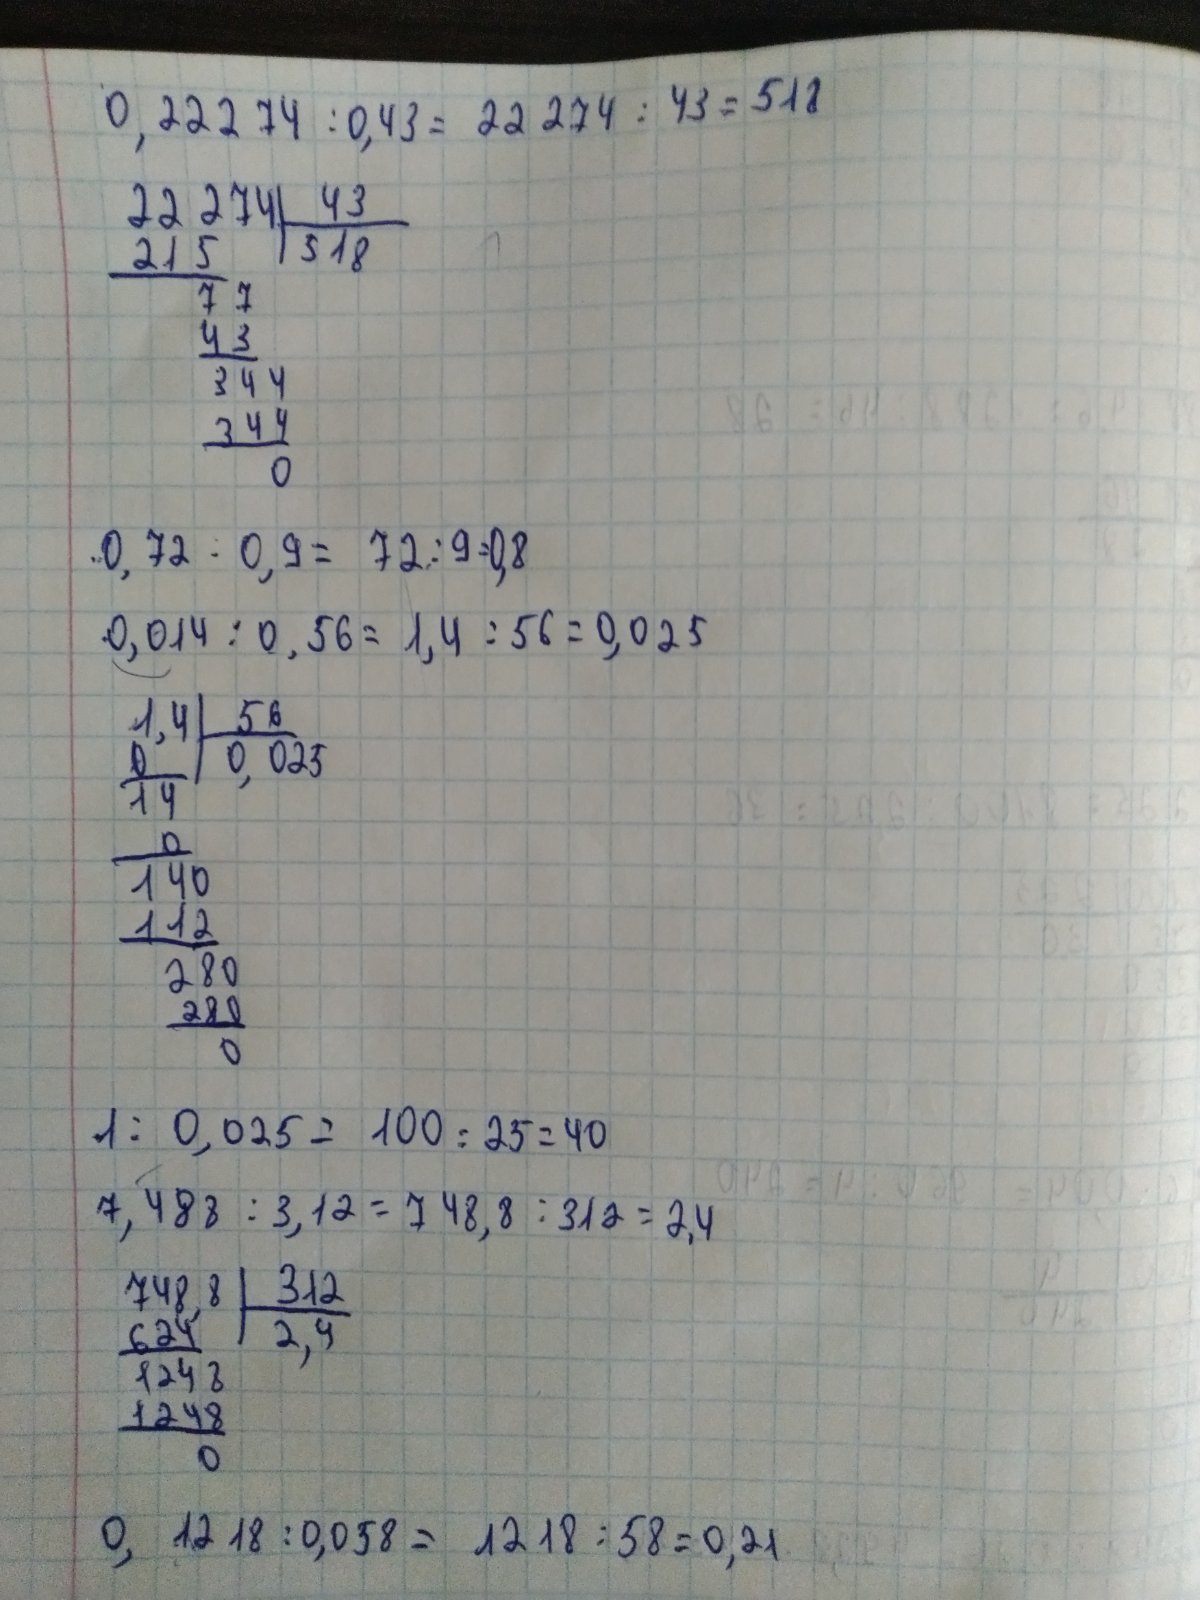 0,22274 : 0,43 = 22274 : 43 = 518
22274 | 43
215 | 518
77
43
344
344
0
0,72 : 0,9 = 72 : 9 = 0,8
0,014 : 0,56 = 1,4 : 56 = 0,025
1,4 | 56
0 | 0,025
14
0
140
112
280
280
0
1 : 0,025 = 100 : 25 = 40
7,488 : 3,12 = 748,8 : 312 = 2,4
748,8 | 312
624 | 2,4
1248
1248
0
0,1218 : 0,058 = 1218 : 58 = 0,21